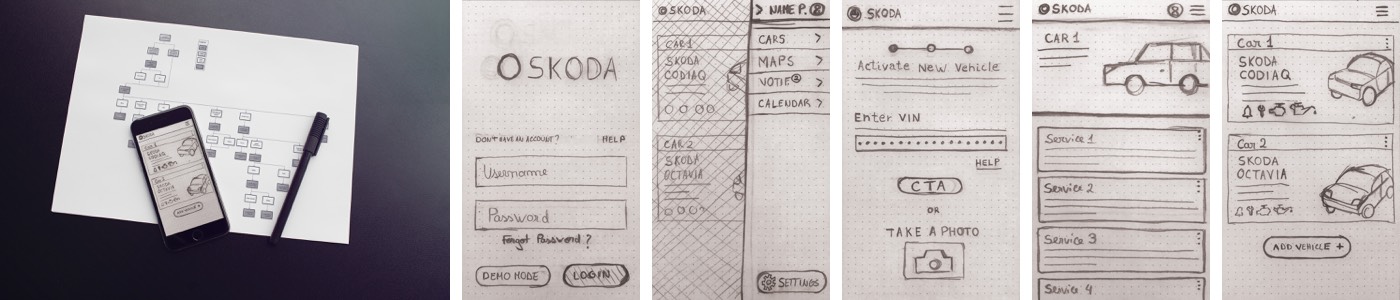 SKODA
DON'T HAVE AN ACCOUNT?
HELP
Username
Password
Forgot Password?
DEMO MODE
LOGIN
SKODA
CAR 1
SKODA
CODIAQ
CAR 2
SKODA
OCTAVIA
> NAME P.
CARS >
MAPS >
VOTIE 3
CALENDAR >
SETTINGS
SKODA
Activate New Vehicle
Enter VIN
HELP
CTA
OR
TAKE A PHOTO
SKODA
CAR 1
Service 1
Service 2
Service 3
Service 4
SKODA
Car 1
SKODA
CODIAQ
Car 2
SKODA
OCTAVIA
ADD VEHICLE +